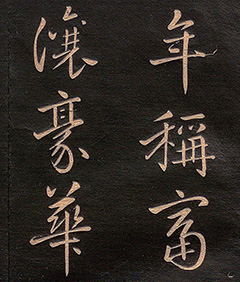 年稱富
瀼豪華